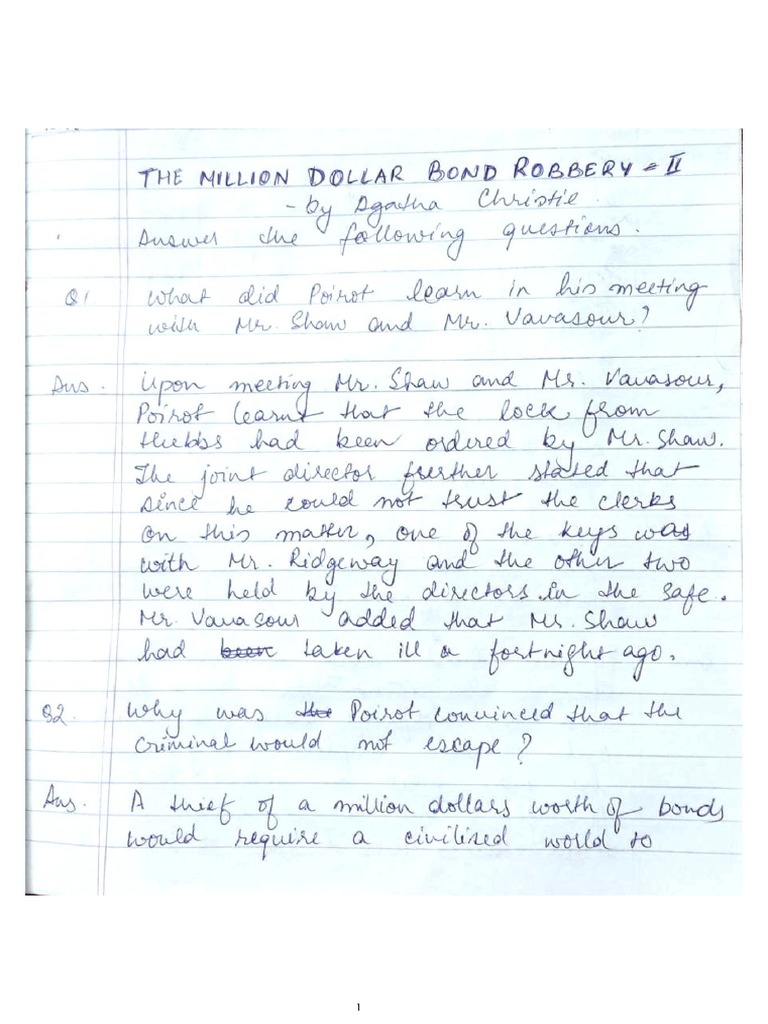 THE MILLION DOLLAR BOND ROBBERY - II
- by Agatha Christie
Answer the following questions.
Q1 What did Poirot learn in his meeting
with Mr. Shaw and Mr. Vavasour?
Ans. Upon meeting Mr. Shaw and Mr. Vavasour,
Poirot learnt that the lock from
Hubbs had been ordered by Mr. Shaw.
The joint director further stated that
since he could not trust the clerks
on this matter, one of the keys was
with Mr. Ridgeway and the other two
were held by the directors in the safe.
Mr. Vavasour added that Mr. Shaw
had been taken ill a fortnight ago.
Q2. Why was the Poirot convinced that the
criminal would not escape?
Ans. A thief of a million dollars worth of bonds
would require a civilized world to
1